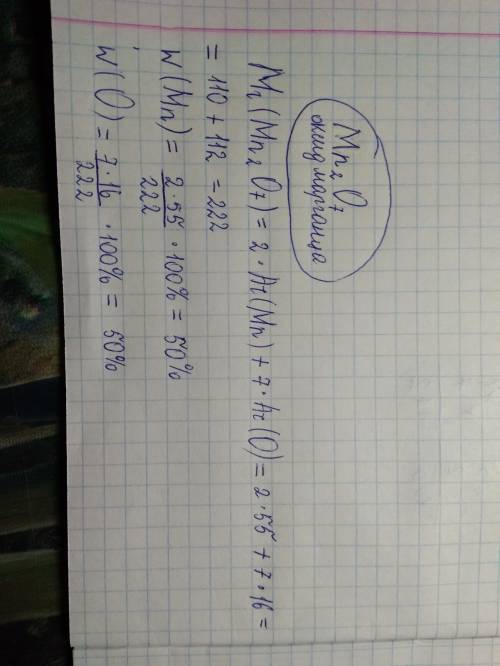 Mn₂O₇
оксид марганца
Mr(Mn₂O₇) = 2 · Ar(Mn) + 7 · Ar(O) = 2 · 55 + 7 · 16 =
= 110 + 112 = 222
W(Mn) = 2 · 55 / 222 · 100% = 50%
W(O) = 7 · 16 / 222 · 100% = 50%